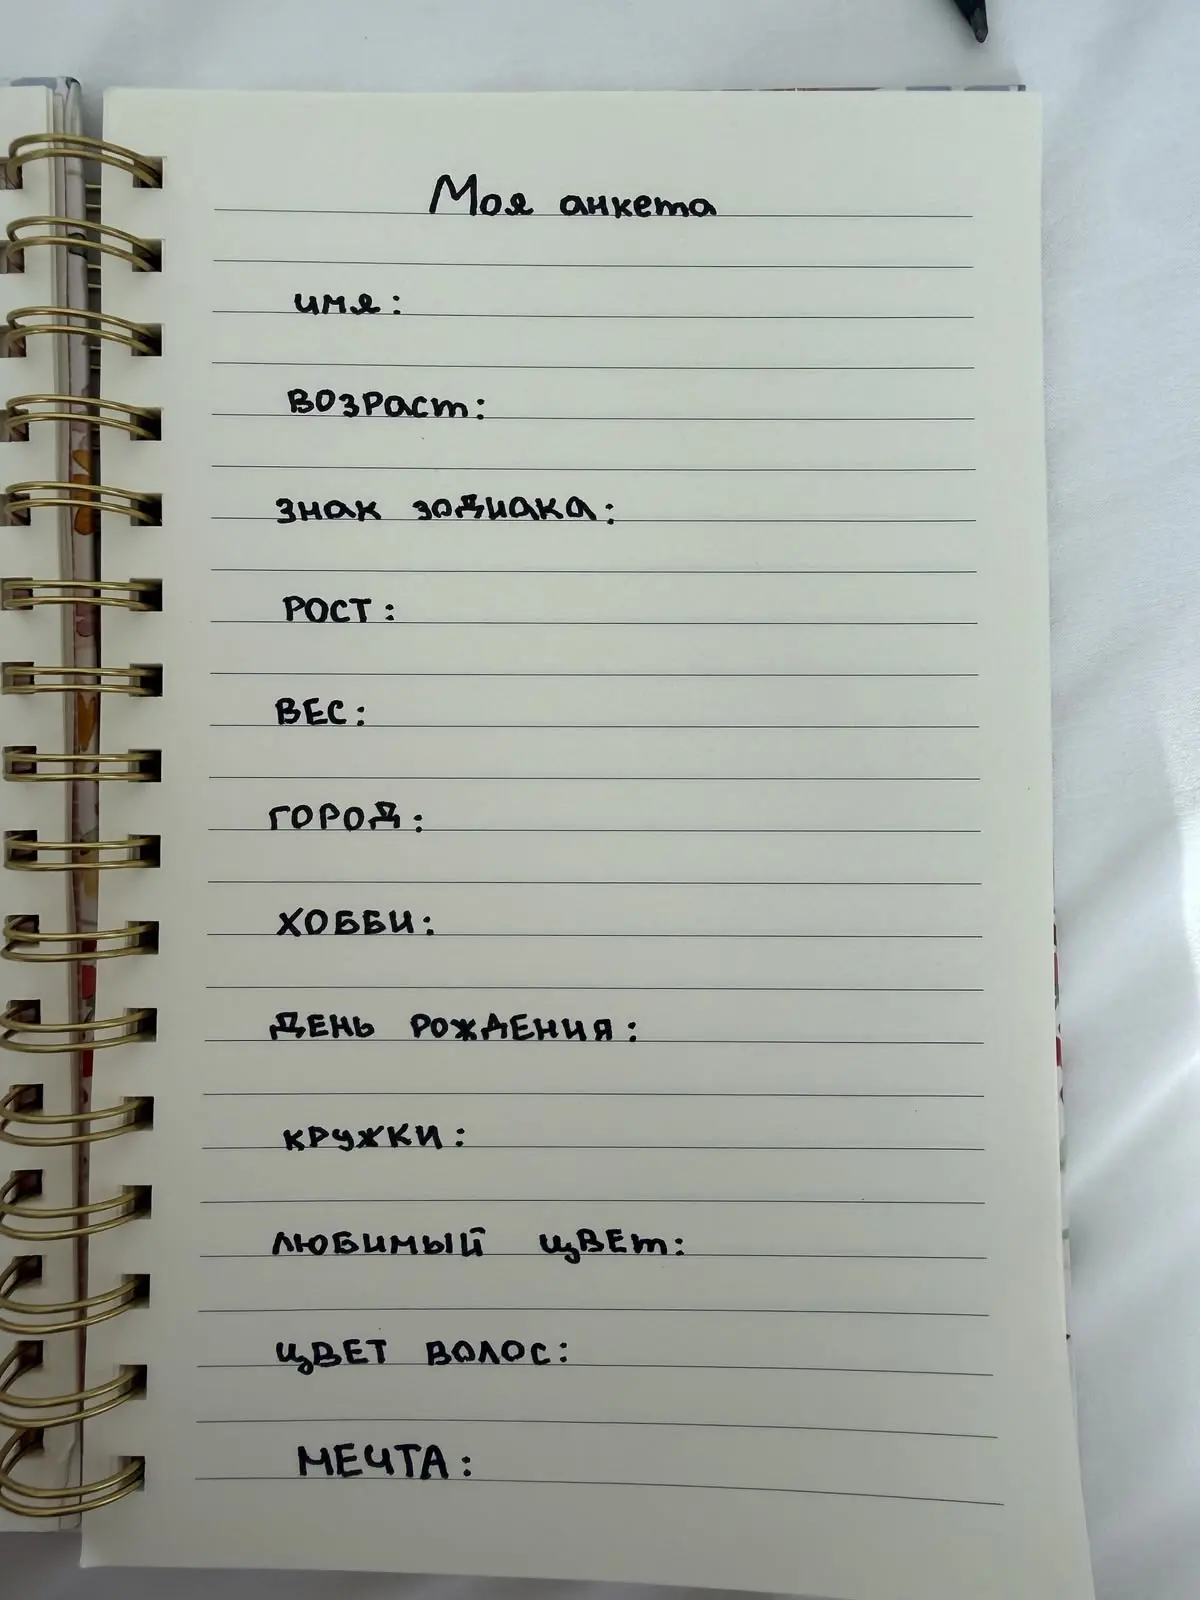 Моя анкета
имя:
возраст:
знак зодиака:
РОСТ:
ВЕС:
ГОРОД:
ХОББИ:
ДЕНЬ РОЖДЕНИЯ:
КРУЖКИ:
ЛЮБИМЫЙ ЦВЕТ:
ЦВЕТ ВОЛОС:
МЕЧТА: